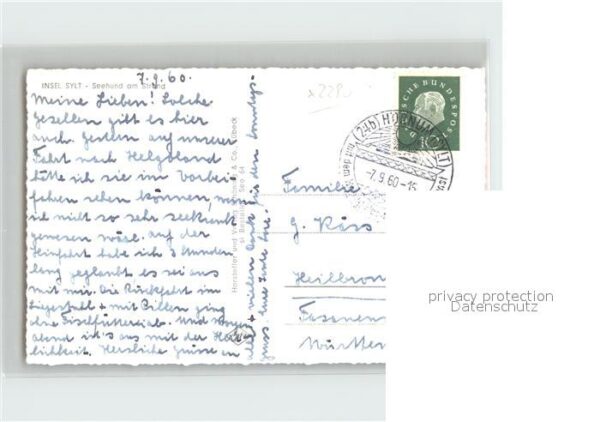 7.9.60.
INSEL SYLT - Seehund am Strand
Meine Lieben! Solche
Gesellen gibt es hier
auch. Gestern auf unserer
Fahrt nach Helgoland
hätte ich sie im Vorbei-
fahren sehen können, wenn
ich nicht so sehr seekrank
gewesen wäre. Auf der
Hinfahrt habe ich 3 Stunden
lang geglaubt es sei aus
mit mir. Die Rückfahrt im
Liegestuhl + mit Pillen ging
ohne Fischfütterei ab. Und
abend ist's aus mit der Herr-
lichkeit. Herzliche Grüsse an
alle + vielen Dank für den
Gruss
Hersteller und
& Co., Lübeck
Bestell
DEUTSCHE BUNDESPOST
10
(24b) HÖRNUM (SYLT)
-7.9.60-15
Familie
G. Käss
Heilbronn
Fasanen
Württem
privacy protection
Datenschutz